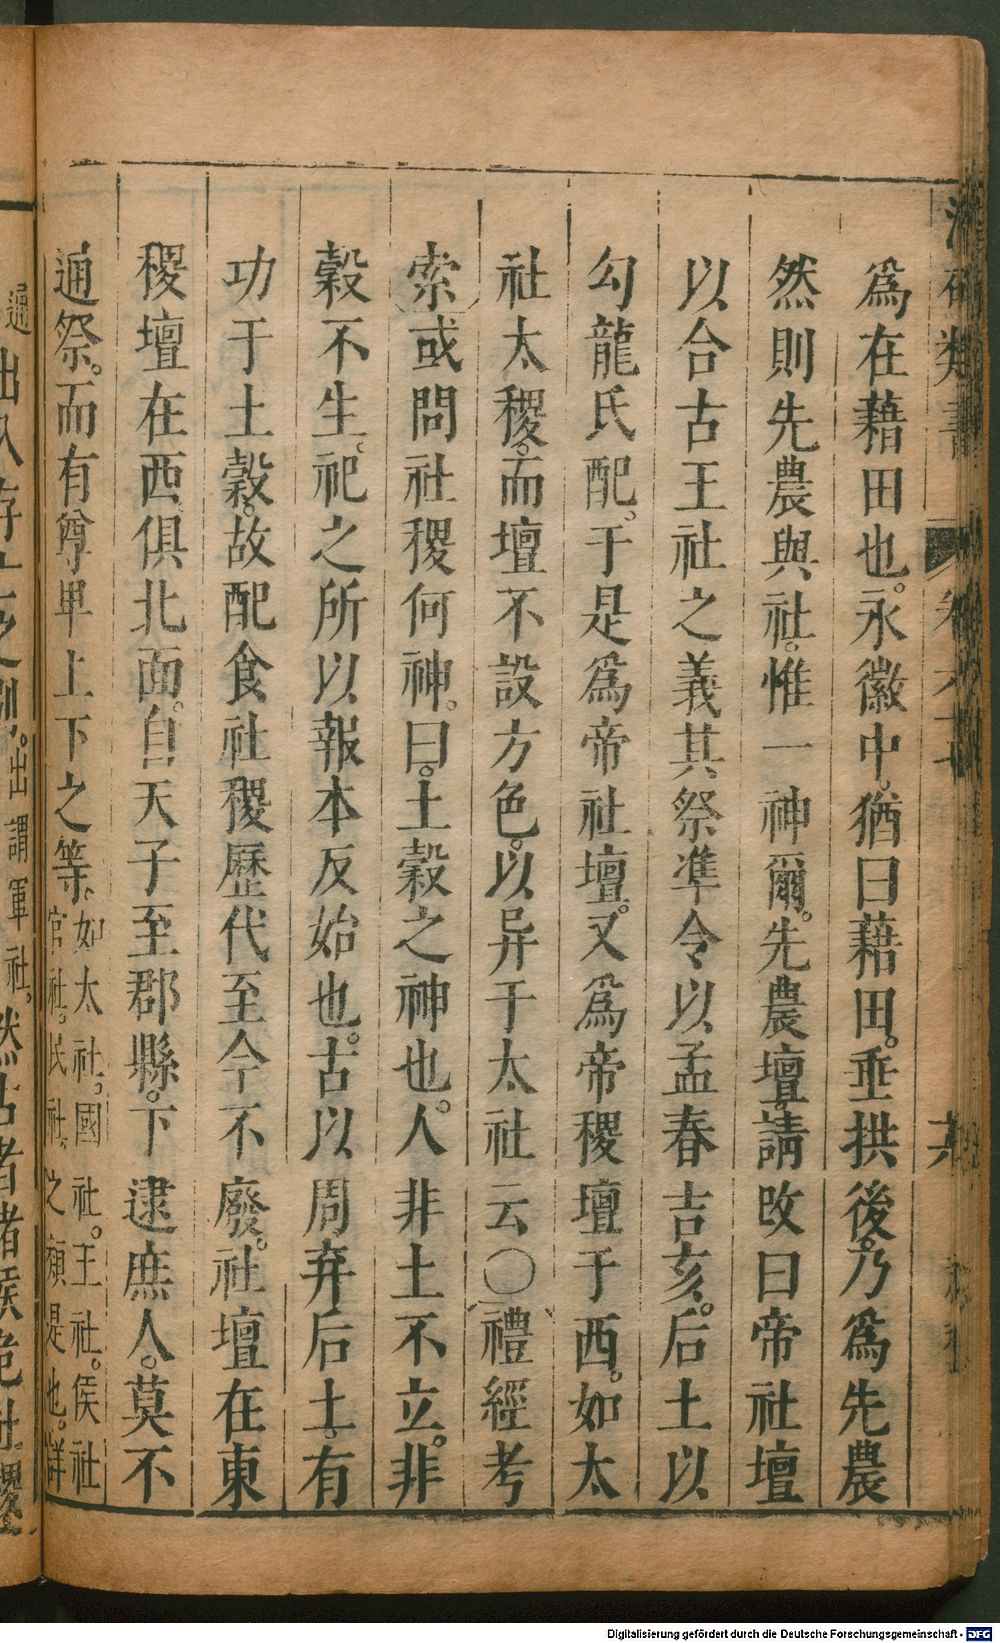 爲在藉田也。永徽中。猶曰藉田。垂拱後。乃爲先農
然則先農與社。惟一神爾。先農壇。請改曰帝社壇
以合古王社之義其祭凖令以孟春吉亥。后土以
勾龍氏配。于是爲帝社壇。又爲帝稷壇于西。如太
社太稷。而壇不設方色。以异于太社云〇禮經考
索或問社稷何神。曰。土穀之神也。人非土不立。非
穀不生。祀之所以報本反始也。古以周弃后土。有
功于土穀。故配食社稷歷代至今不廢。社壇在東
稷壇在西。俱北面。自天子至郡縣。下逮庶人。莫不
通祭。而有尊卑上下之等。如太社。國社。王社。侯社
官社。民社。之類是也。詳
出謂軍社。然古者諸侯
Digitalisierung gefördert durch die Deutsche Forschungsgemeinschaft - DFG